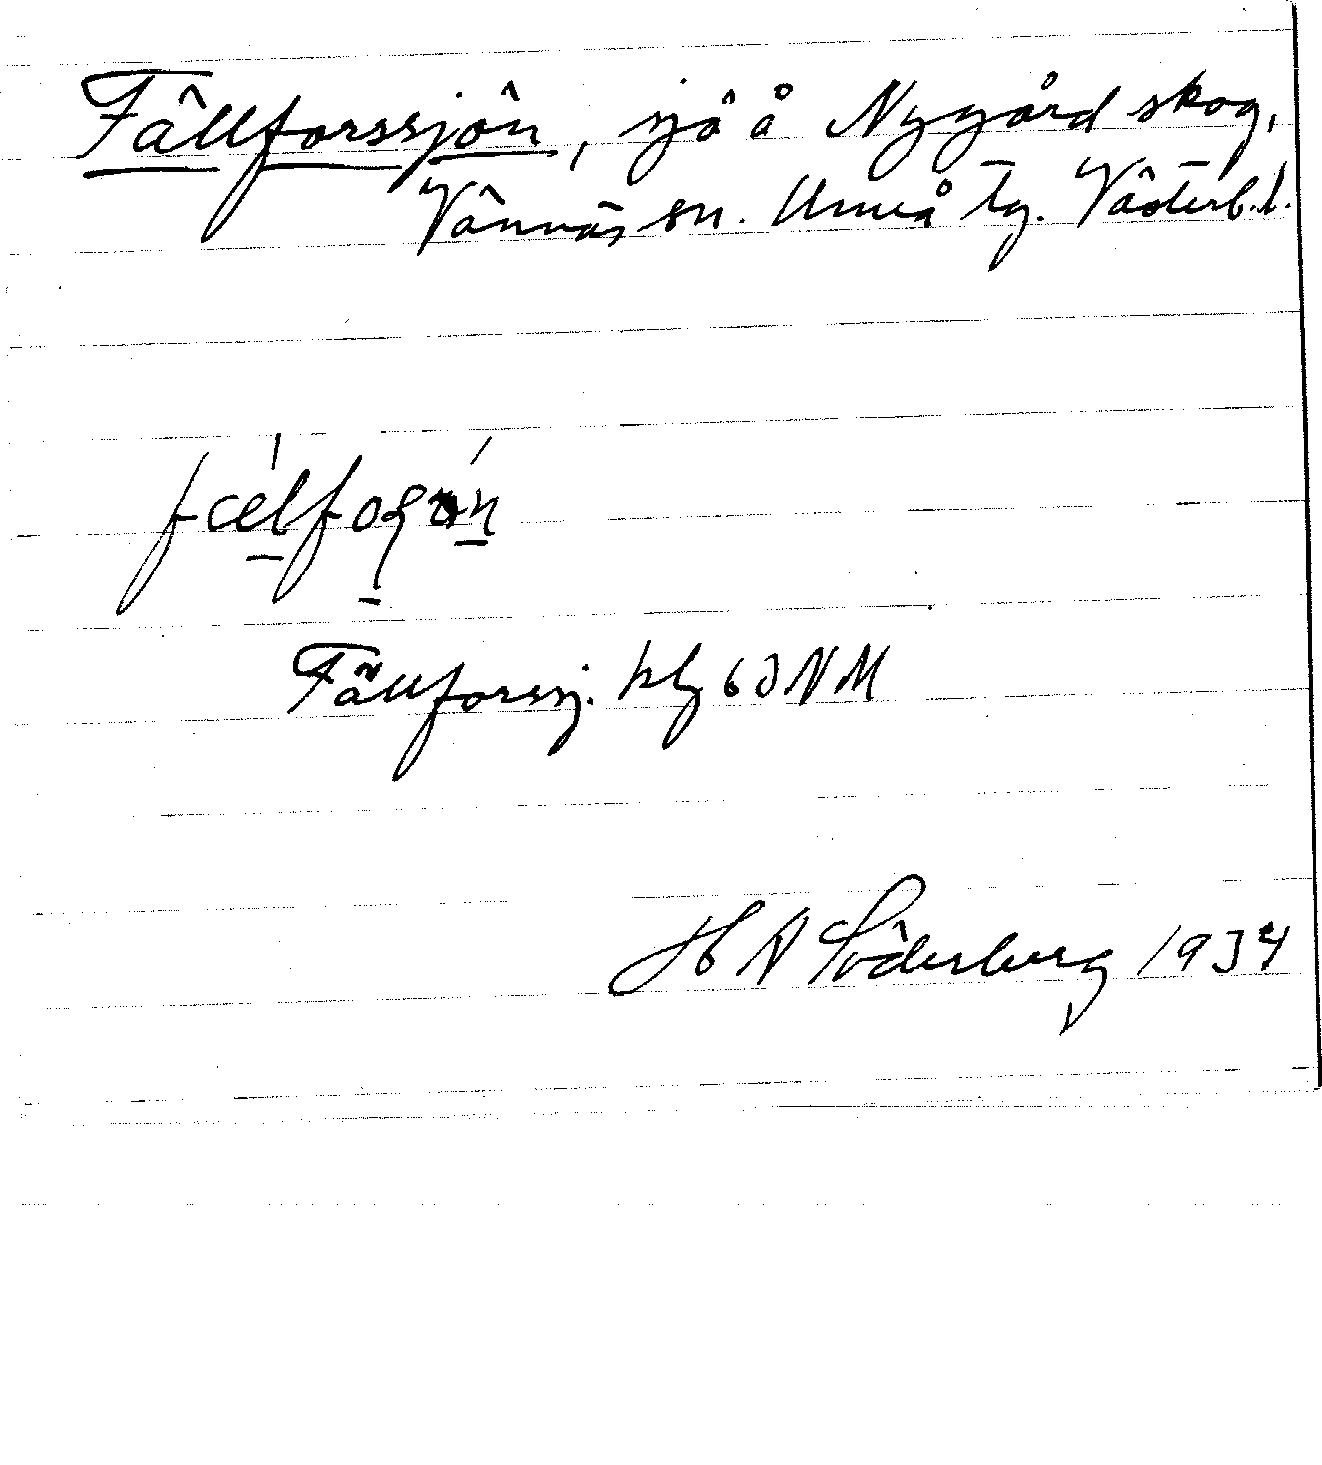 Fällforssjön, sjö å Nygård skog,
Vännäs sn. Umeå tg. Västerb. l.
Fällforssj. hbl 63 NV
H N Söderberg 1934